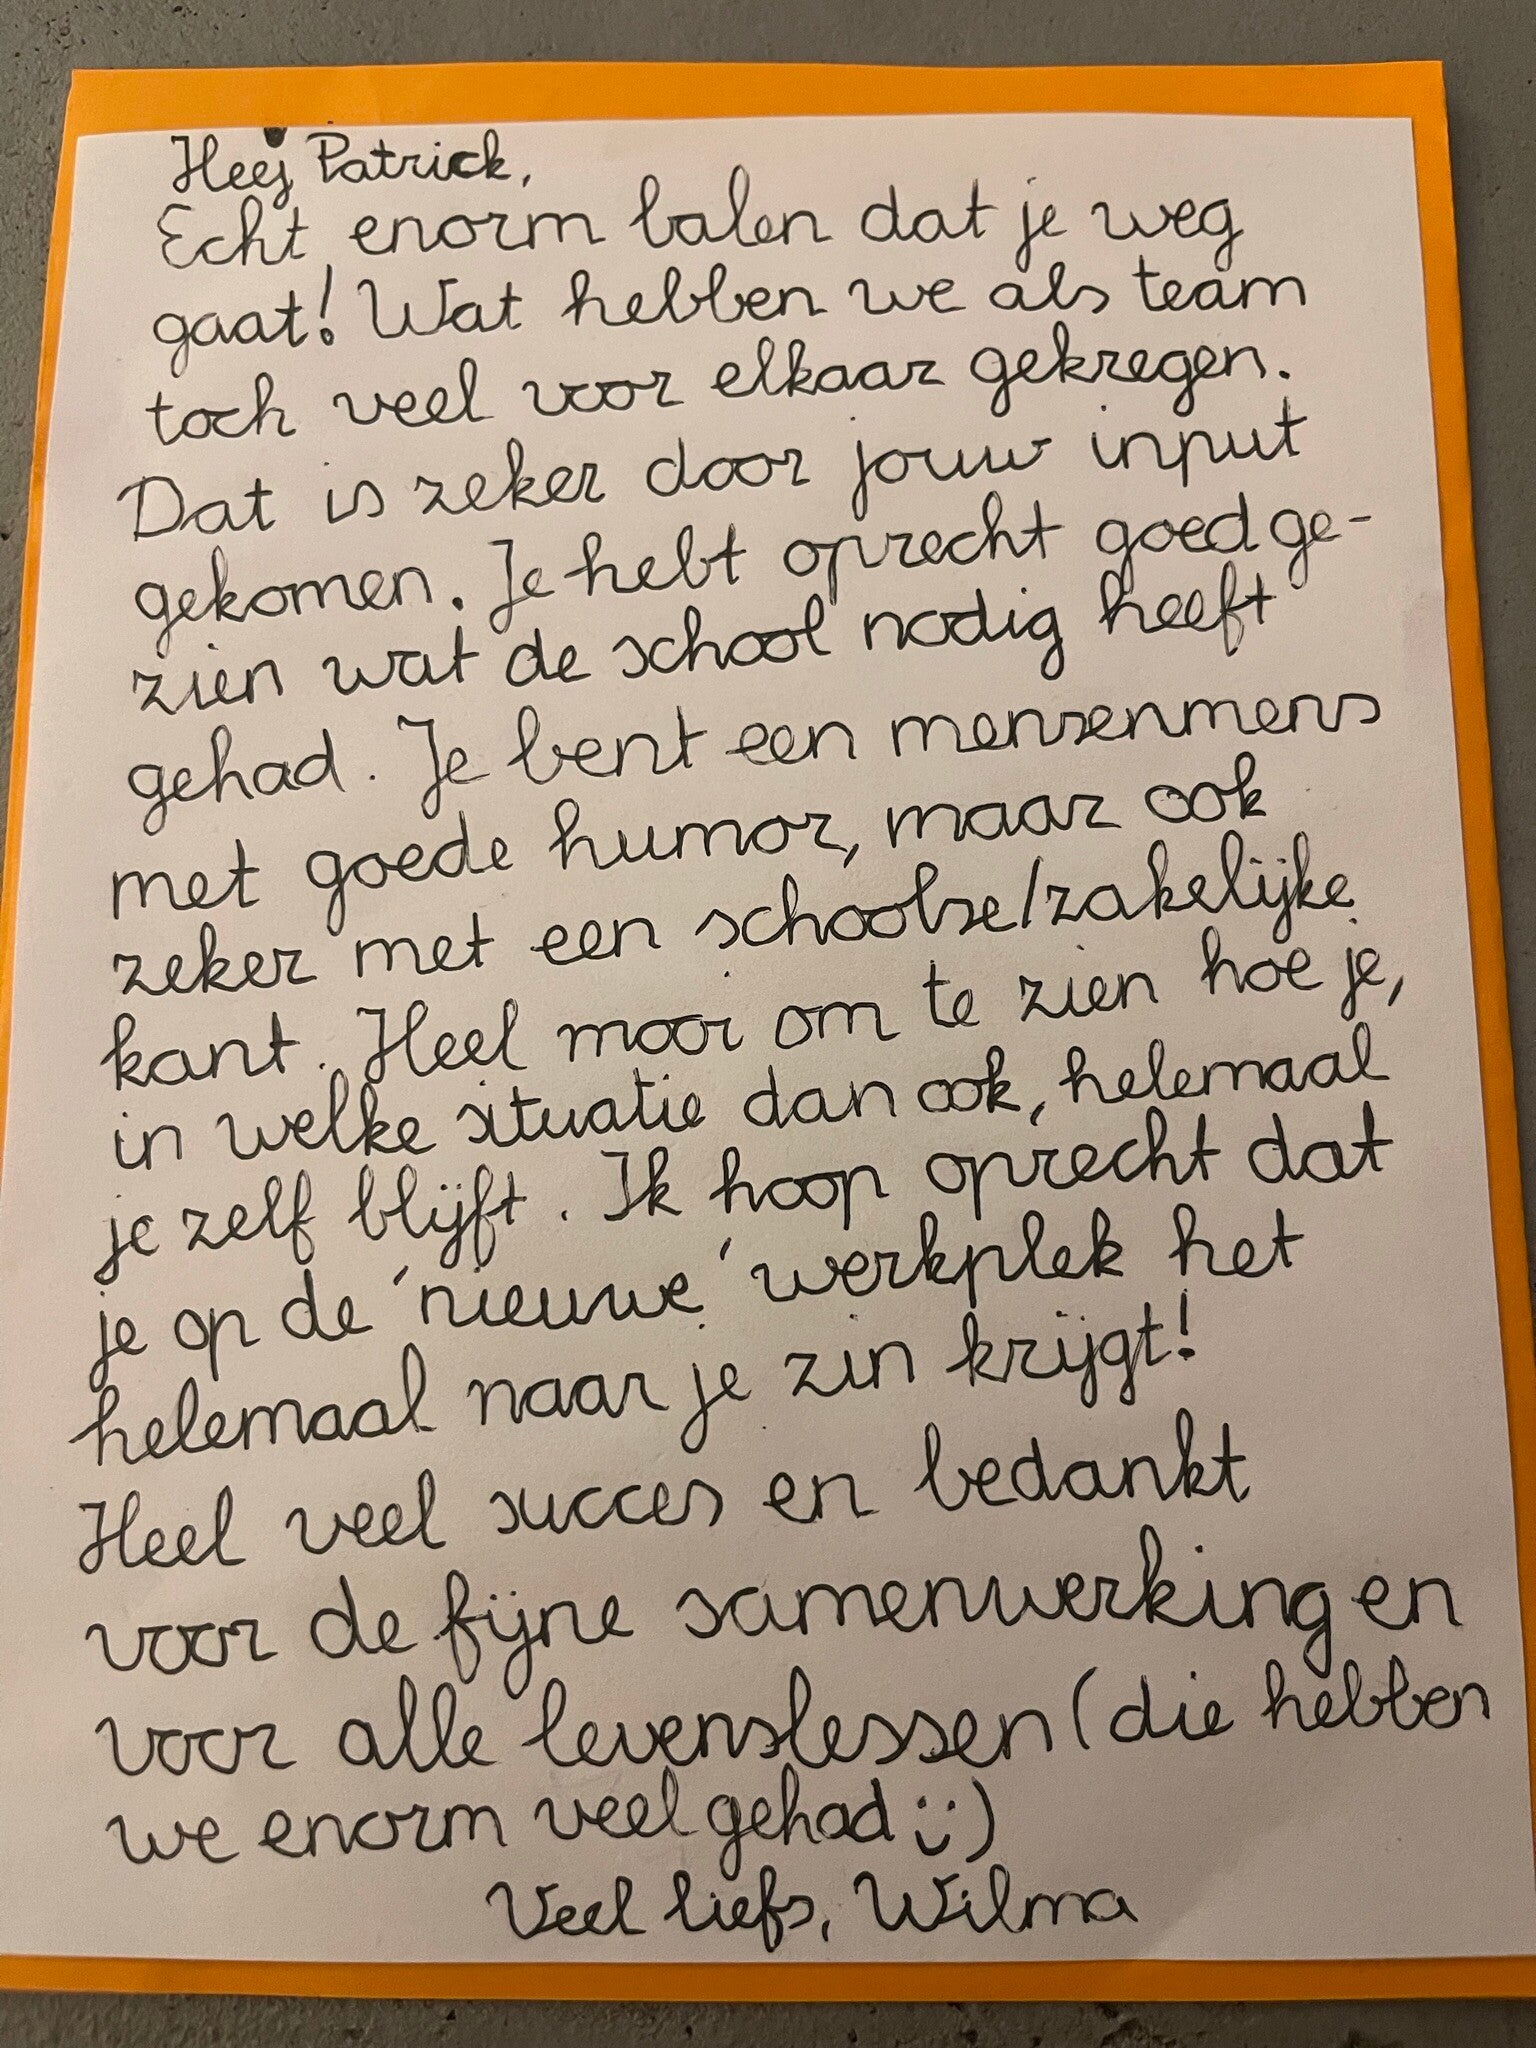 Heej Patrick,
Echt enorm balen dat je weg
gaat! Wat hebben we als team
toch veel voor elkaar gekregen.
Dat is zeker door jouw input
gekomen. Je hebt oprecht goed ge-
zien wat de school nodig heeft
gehad. Je bent een mensenmens
met goede humor, maar ook
zeker met een schoolse/zakelijke
kant. Heel mooi om te zien hoe je,
in welke situatie dan ook, helemaal
je zelf blijft. Ik hoop oprecht dat
je op de 'nieuwe' werkplek het
helemaal naar je zin krijgt!
Heel veel succes en bedankt
voor de fijne samenwerking en
voor alle levenslessen (die hebben
we enorm veel gehad :))
Veel liefs, Wilma